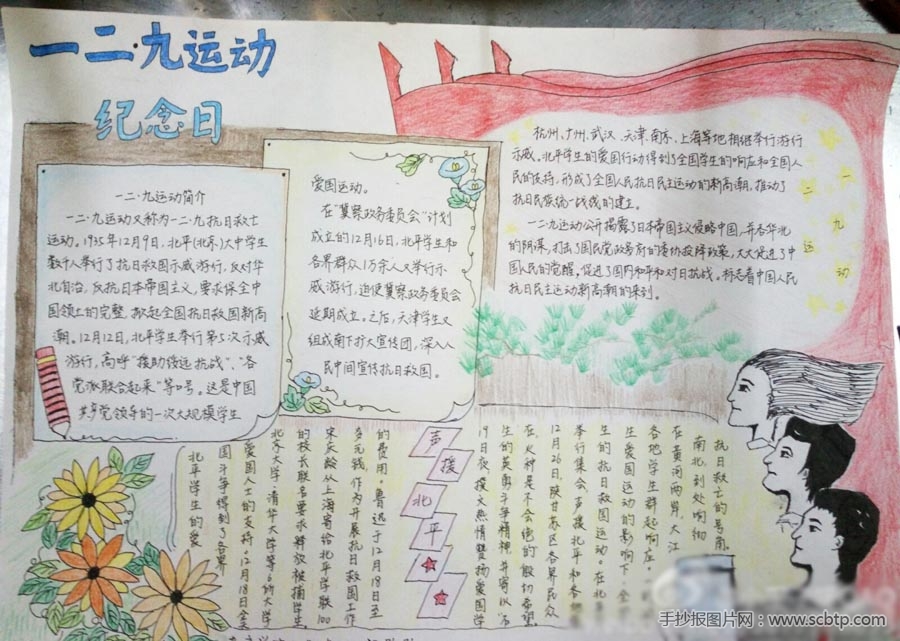 一二·九运动
纪念日
一二·九运动简介
一二·九运动又称为一二·九抗日救亡
运动。1935年12月9日,北平(北京)大中学生
数千人举行了抗日救国示威游行,反对华
北自治,反抗日本帝国主义,要求保全中
国领土的完整,掀起全国抗日救国新高
潮。12月12日,北平学生举行第5次示威
游行,高呼"援助绥远抗战"、"各
党派联合起来"等口号。这是中国
共产党领导的一次大规模学生
爱国运动。
在"冀察政务委员会"计划
成立的12月16日,北平学生和
各界群众1万余人又举行示
威游行,迫使冀察政务委员会
延期成立。之后,天津学生又
组成南下扩大宣传团,深入人
民中间宣传抗日救国。
杭州、广州、武汉、天津、南京、上海等地相继举行游行
示威。北平学生的爱国行动得到了全国学生的响应和全国人
民的支持,形成了全国人民抗日民主运动的新高潮,推动了
抗日民族统一战线的建立。
一二九运动公开揭露了日本帝国主义侵略中国,并吞华北
的阴谋,打击了国民党政府的妥协投降政策,大大促进了中
国人民的觉醒,促进了国内和平和对日抗战,标志着中国人民
抗日民主运动新高潮的来到。
一二九运动
抗日救亡的号角,
南北,到处响彻
在黄河两岸,大江
各地学生群起响应,
生爱国运动的影响下,全
生的抗日救国运动。在北平
举行集会,声援北平和各
12月26日,陕甘苏区各界民众
在,火种是不会绝的"殷切希望。
生的英勇斗争精神,并寄以"
19日夜,撰文热情赞扬爱国学
声援北平
的费用。鲁迅于12月18日至
多元钱,作为开展抗日救国工作
宋庆龄从上海寄给北平学联100
的校长联名要求释放被捕学生。
北京大学、清华大学等6所大学
爱国人士的支持。12月18日
国斗争得到了各界
北平学生的爱
手抄报图片网:www.scbtp.com